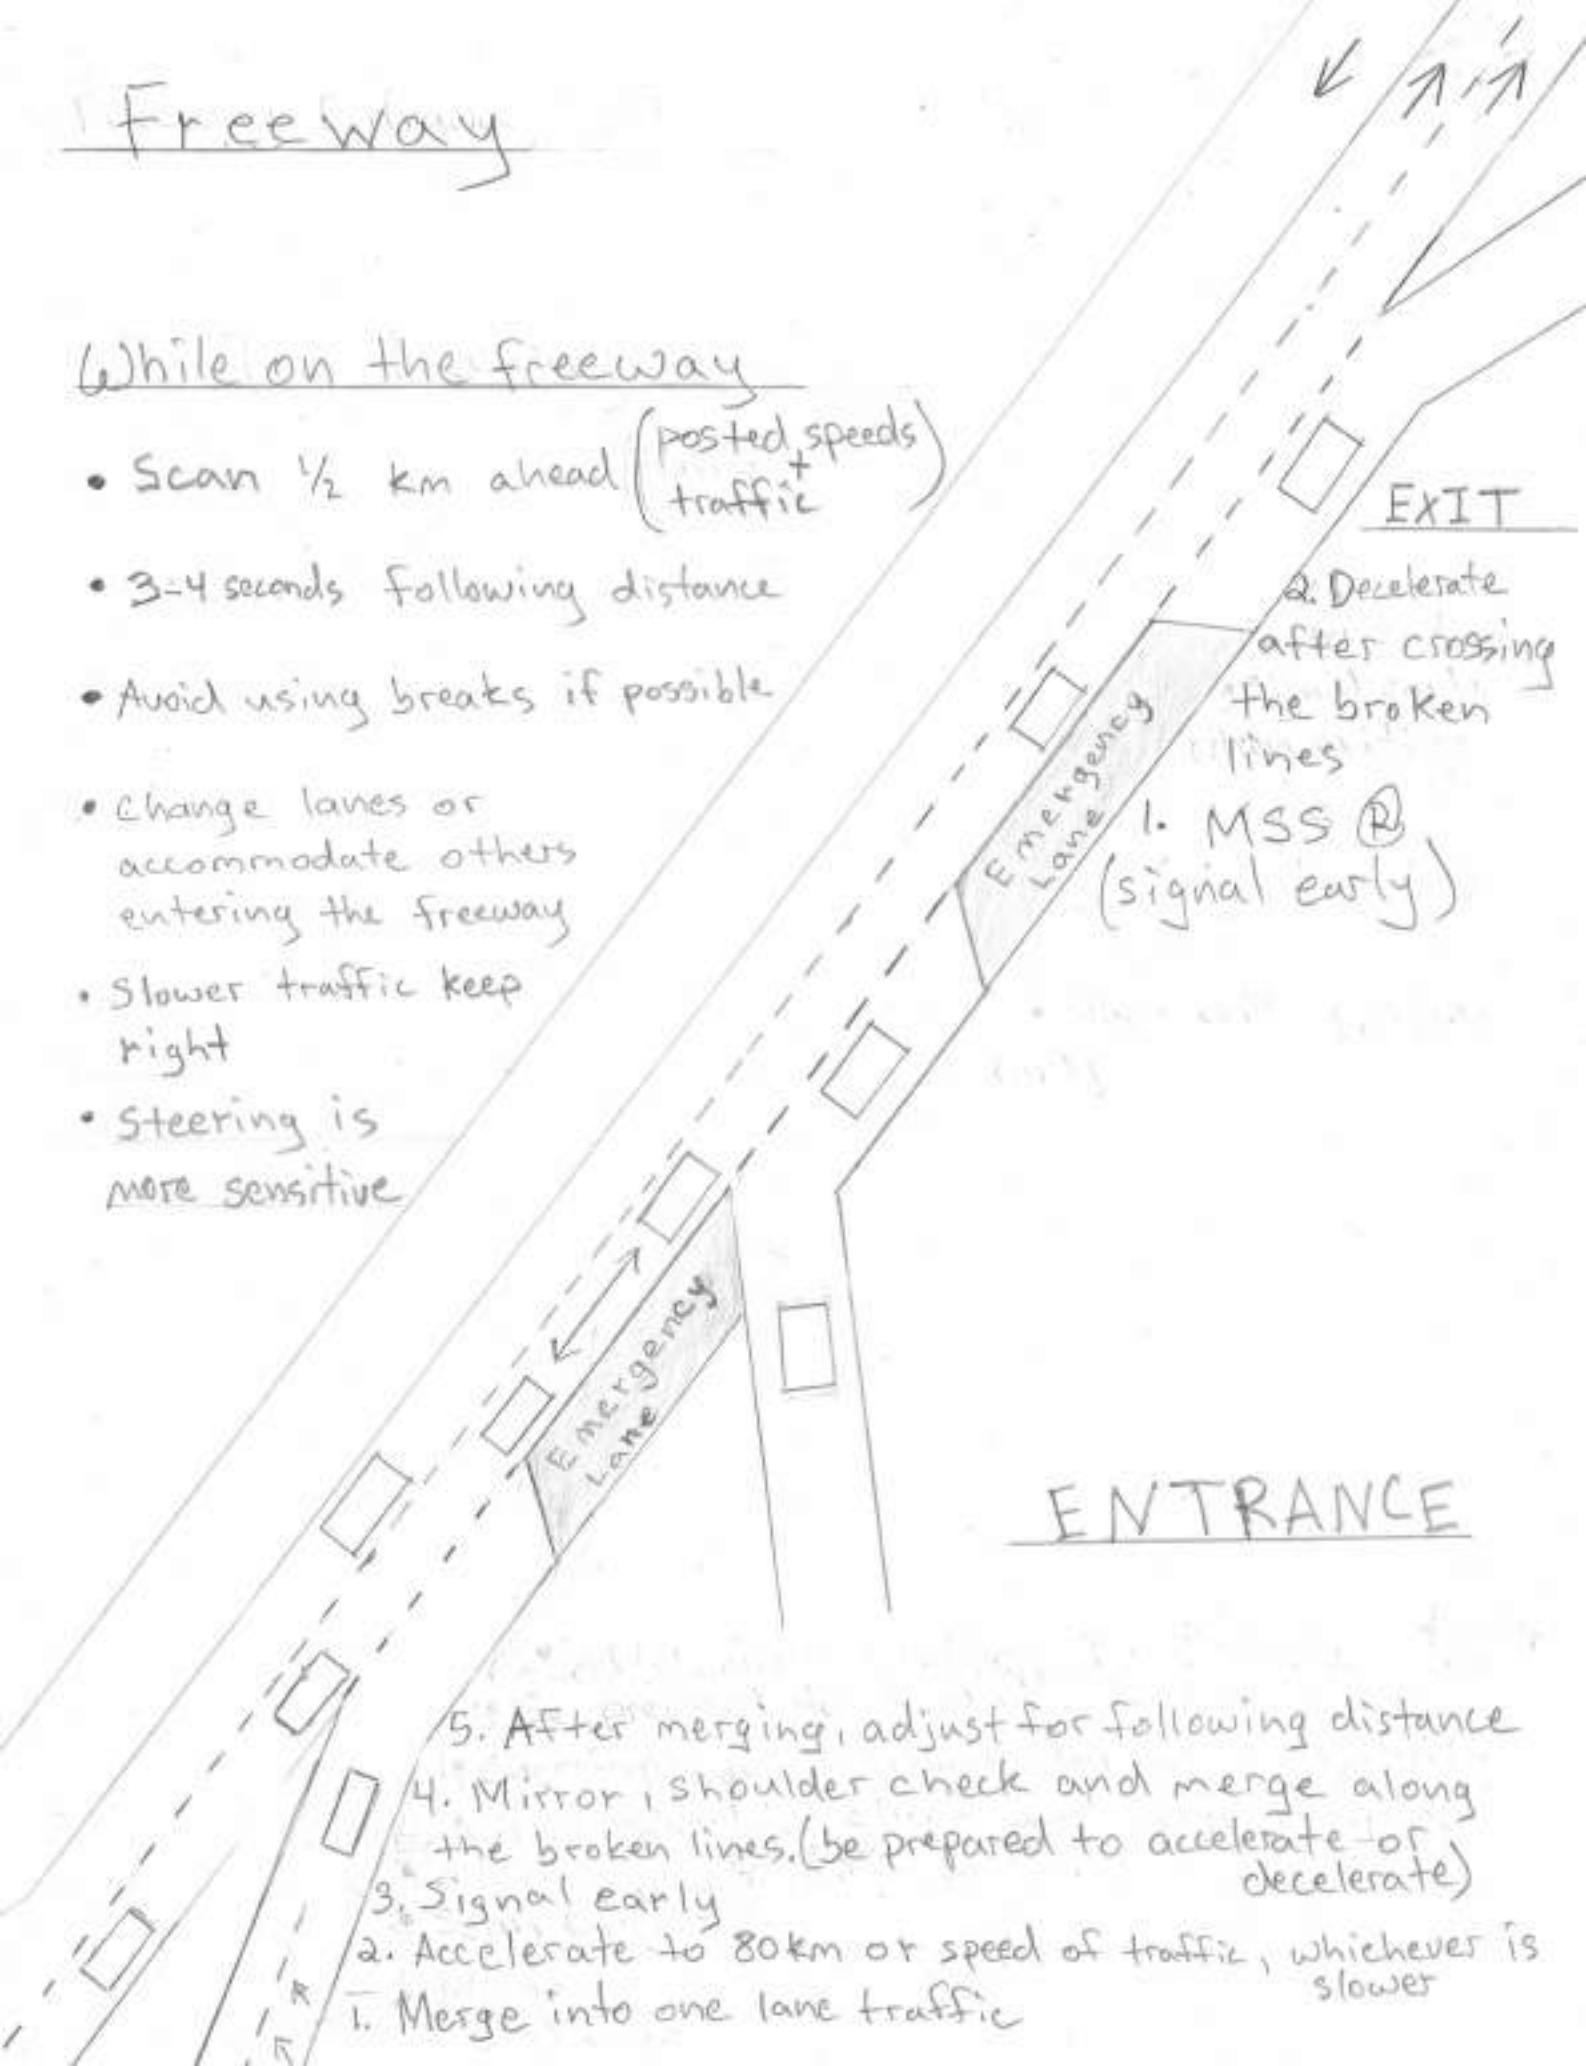 Freeway
While on the freeway
• Scan 1/2 km ahead (posted speeds
+
traffic)
• 3-4 seconds following distance
• Avoid using breaks if possible
• Change lanes or
accommodate others
entering the freeway
• Slower traffic keep
right
• Steering is
more sensitive
EXIT
2. Decelerate
after crossing
the broken
lines
1. MSS Ⓡ
(signal early)
Emergency
Lane
Emergency
Lane
ENTRANCE
5. After merging, adjust for following distance
4. Mirror, shoulder check and merge along
the broken lines. (be prepared to accelerate or
decelerate)
3. Signal early
2. Accelerate to 80km or speed of traffic, whichever is
slower
1. Merge into one lane traffic